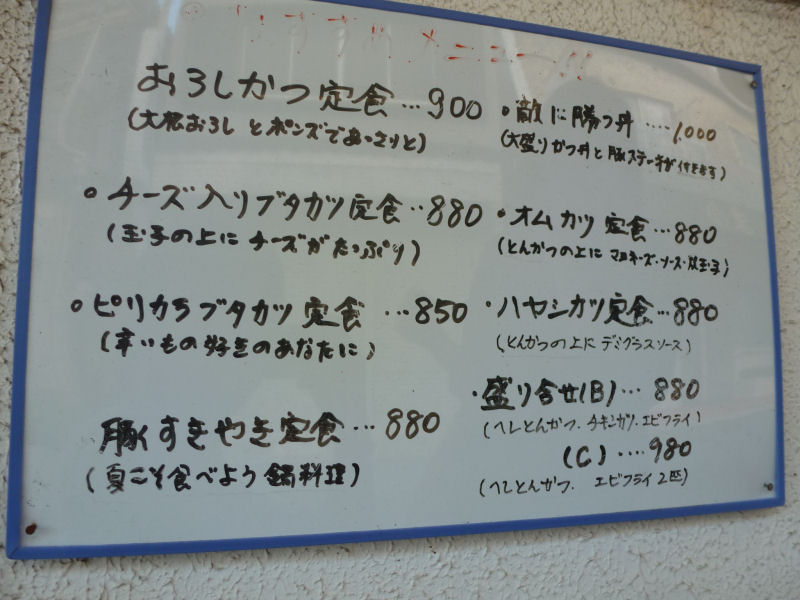 おすすめメニュー!!
おろしかつ定食…900
(大根おろしとポンズであっさりと)
・チーズ入りブタカツ定食‥880
(玉子の上にチーズがたっぷり)
・ピリカラブタカツ定食…850
(辛いもの好きのあなたに)
豚すきやき定食…880
(夏こそ食べよう鍋料理)
・敵に勝つ丼‥‥1,000
(大盛りかつ丼と豚ステーキが付きます)
・オムカツ定食…880
(とんかつの上にマヨネーズ・ソース・炒玉子)
・ハヤシカツ定食…880
(とんかつの上にデミグラスソース)
・盛り合せ(B)…880
(ヘレとんかつ.チキンカツ.エビフライ)
(C)‥‥980
(ヘレとんかつ.エビフライ2匹)